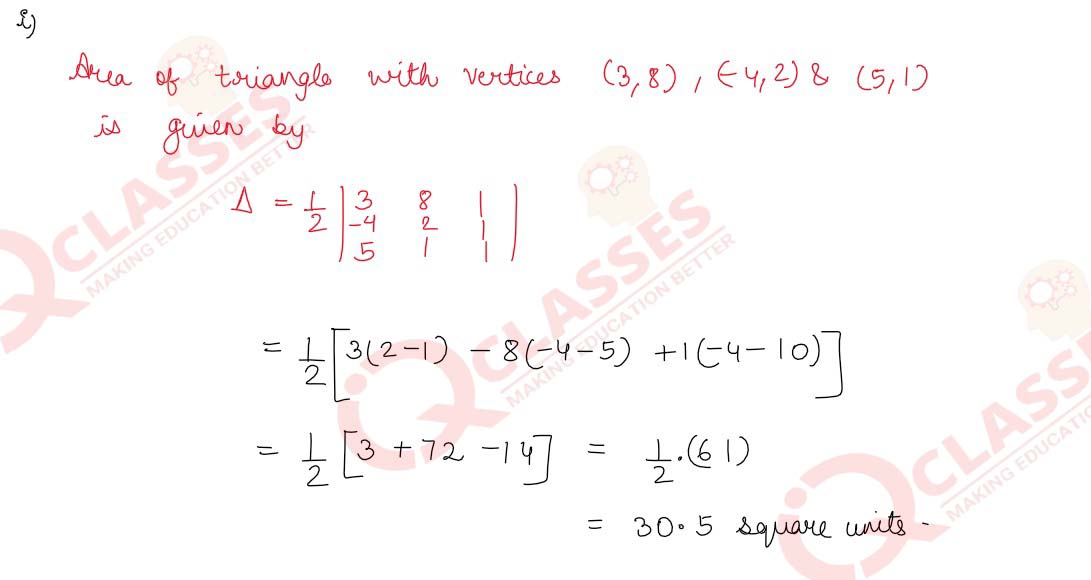 i)
Area of triangle with vertices (3,8), (-4,2) & (5,1)
is given by
Δ = 1/2 |3 8 1|
|-4 2 1|
|5 1 1|
= 1/2 [3(2-1) - 8(-4-5) + 1(-4-10)]
= 1/2 [3 + 72 - 14] = 1/2 . (61)
= 30.5 square units.
iQ CLASSES
MAKING EDUCATION BETTER
iQ CLASSES
MAKING EDUCATION BETTER
iQ CLASSES
MAKING EDUCATION